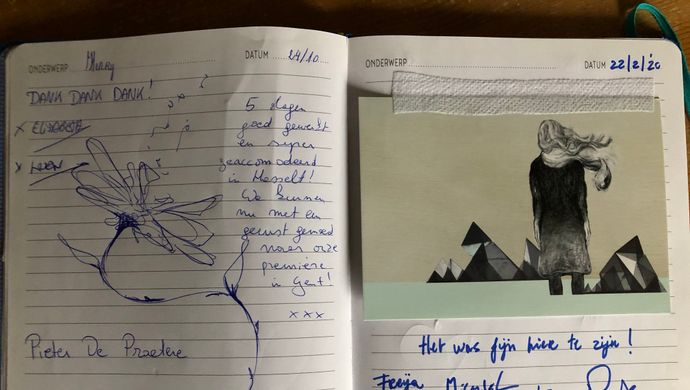 ONDERWERP Merry
DATUM 24/10
DANK DANK DANK!
x ELISABETH
x LIEN
5 dagen
goed gewerkt
en super
geaccomodeerd
in Hasselt!
We kunnen
nu met een
gerust gemoed
naar onze
première
in Gent!
xxx
Pieter De Praetere
ONDERWERP
DATUM 22/2/'20
Het was fijn hier te zijn!
Freija